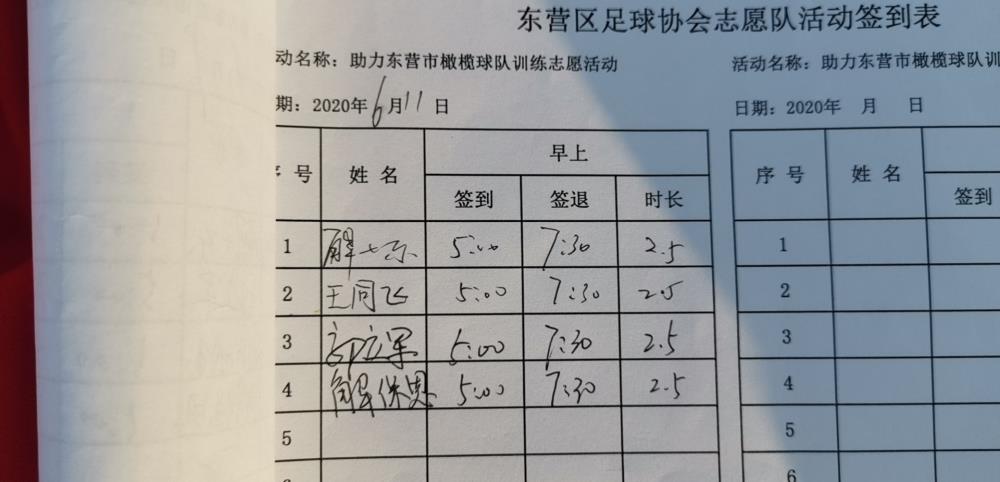 东营区足球协会志愿队活动签到表
动名称：助力东营市橄榄球队训练志愿活动
活动名称：助力东营市橄榄球队训
期：2020年6月11日
日期：2020年 月 日
序号 姓名 早上
签到 签退 时长
1 5:00 7:30 2.5
2 王同飞 5:00 7:30 2.5
3 5:00 7:30 2.5
4 解保恩 5:00 7:30 2.5
5
序号 姓名
签到
1
2
3
4
5
6